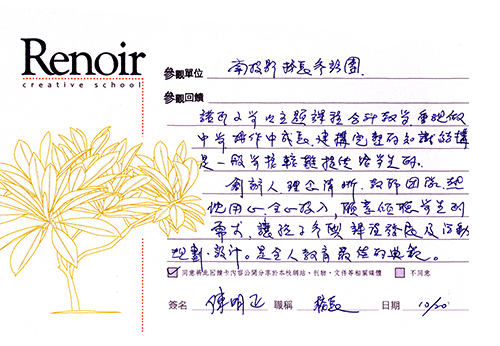 Renoir
creative school
參觀單位 南投縣 校長參訪團
參觀回饋
以主題課程合科教學
中學 操作中成長、建構完整的知識結構
是一般學校較難提供給學生的。
創辦人理念清晰、教師團隊
用心、全心投入,願意傾聽學生的
需求,讓孩子參與課程發展及活動
規劃、設計。是全人教育最佳的典範。
同意將此回饋卡內容公開分享於本校網站、刊物、文件等相關媒體 不同意
簽名 陳明正 職稱 校長 日期 10/20